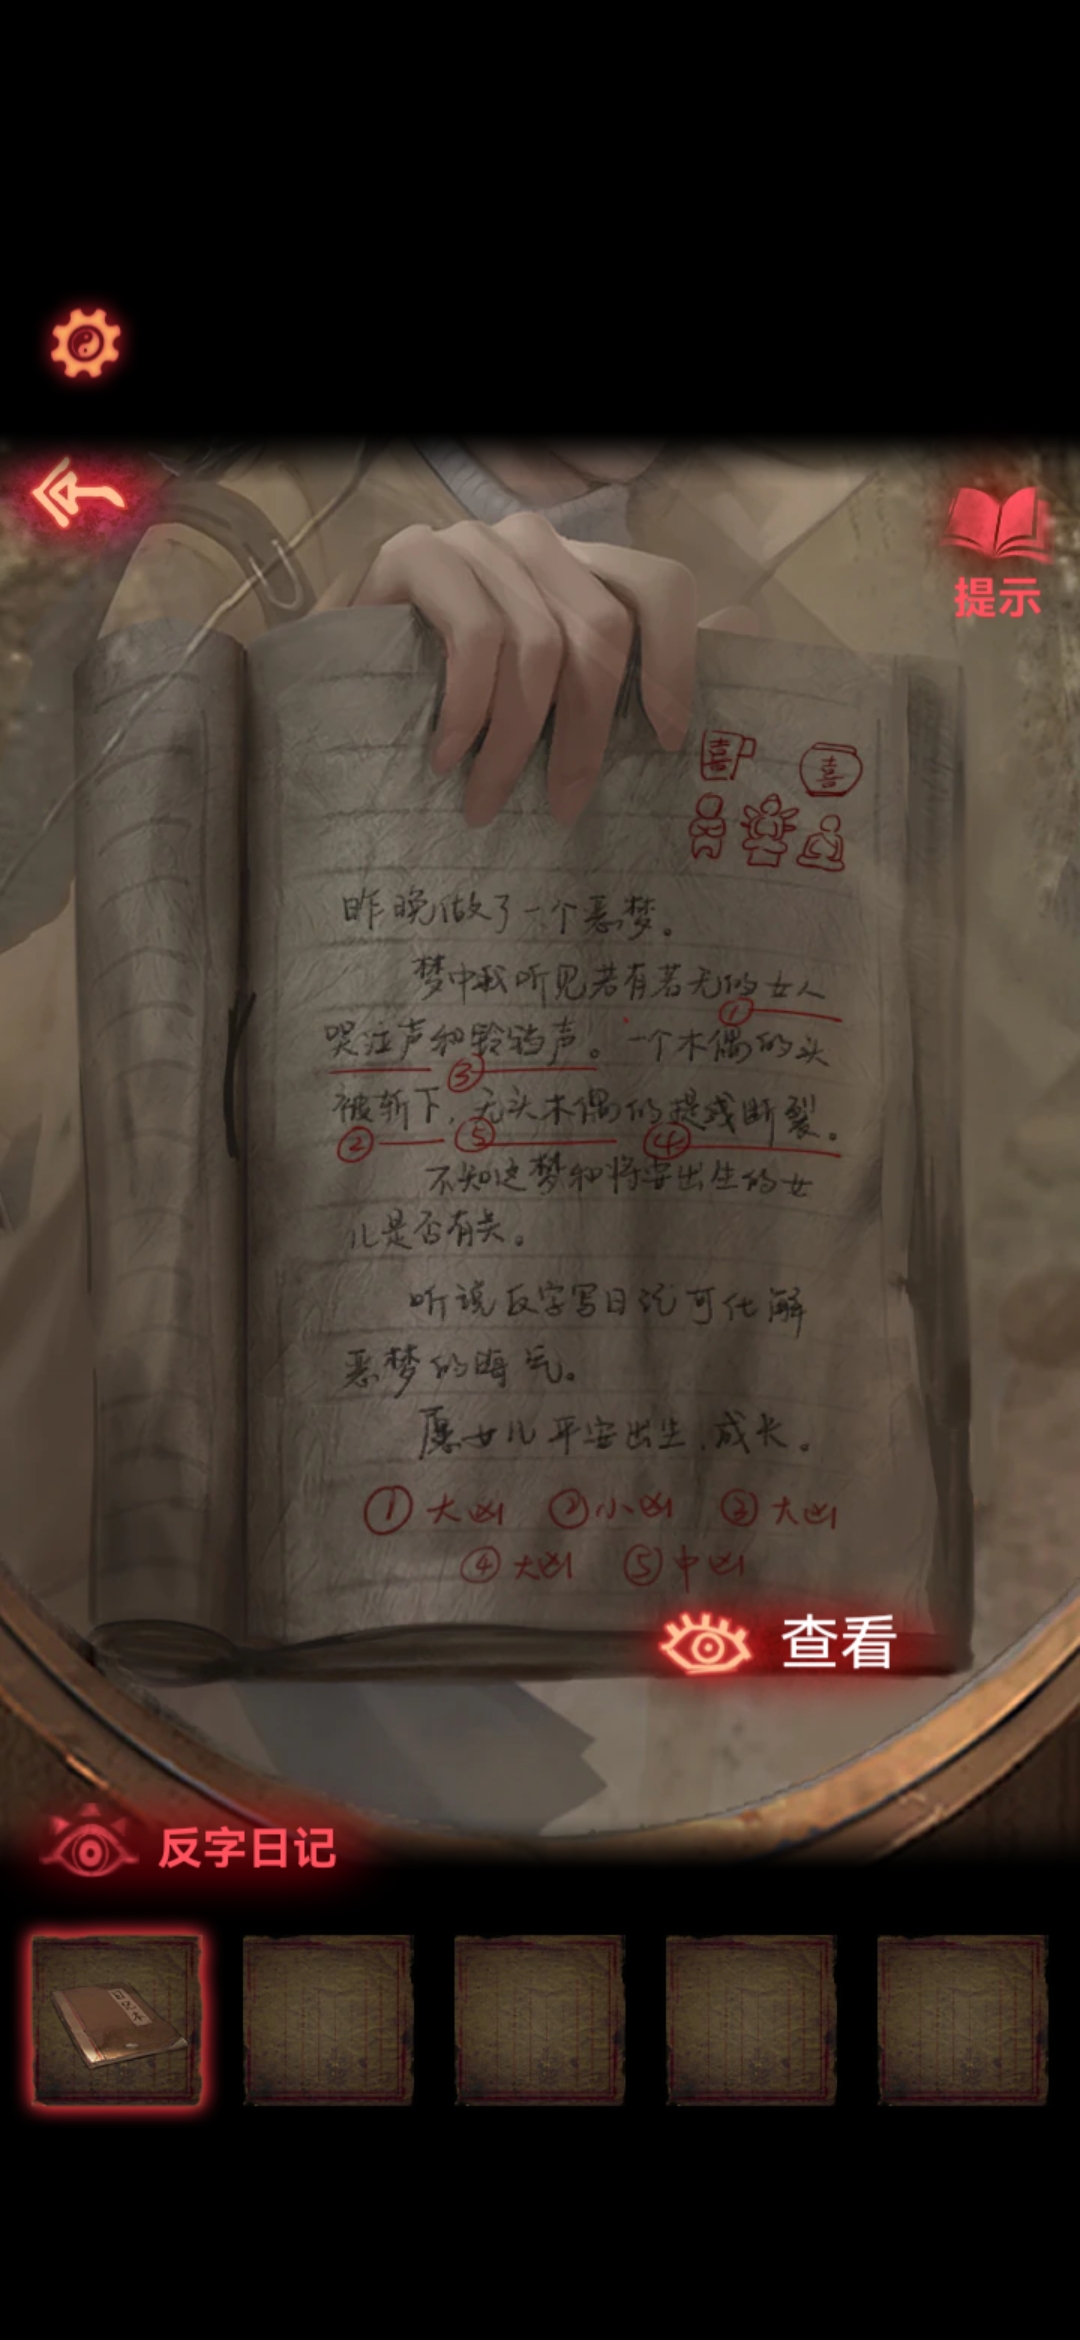 提示
喜 喜
昨晚做了一个恶梦。
梦中我听见若有若无的女人
①
哭泣声和铃铛声。一个木偶的头
③
被斩下,无头木偶的提线断裂。
② ⑤ ④
不知这梦和将要出生的女
儿是否有关。
听说反字写日记可化解
恶梦的晦气。
愿女儿平安出生,成长。
①大凶 ②小凶 ③大凶
④大凶 ⑤中凶
查看
反字日记